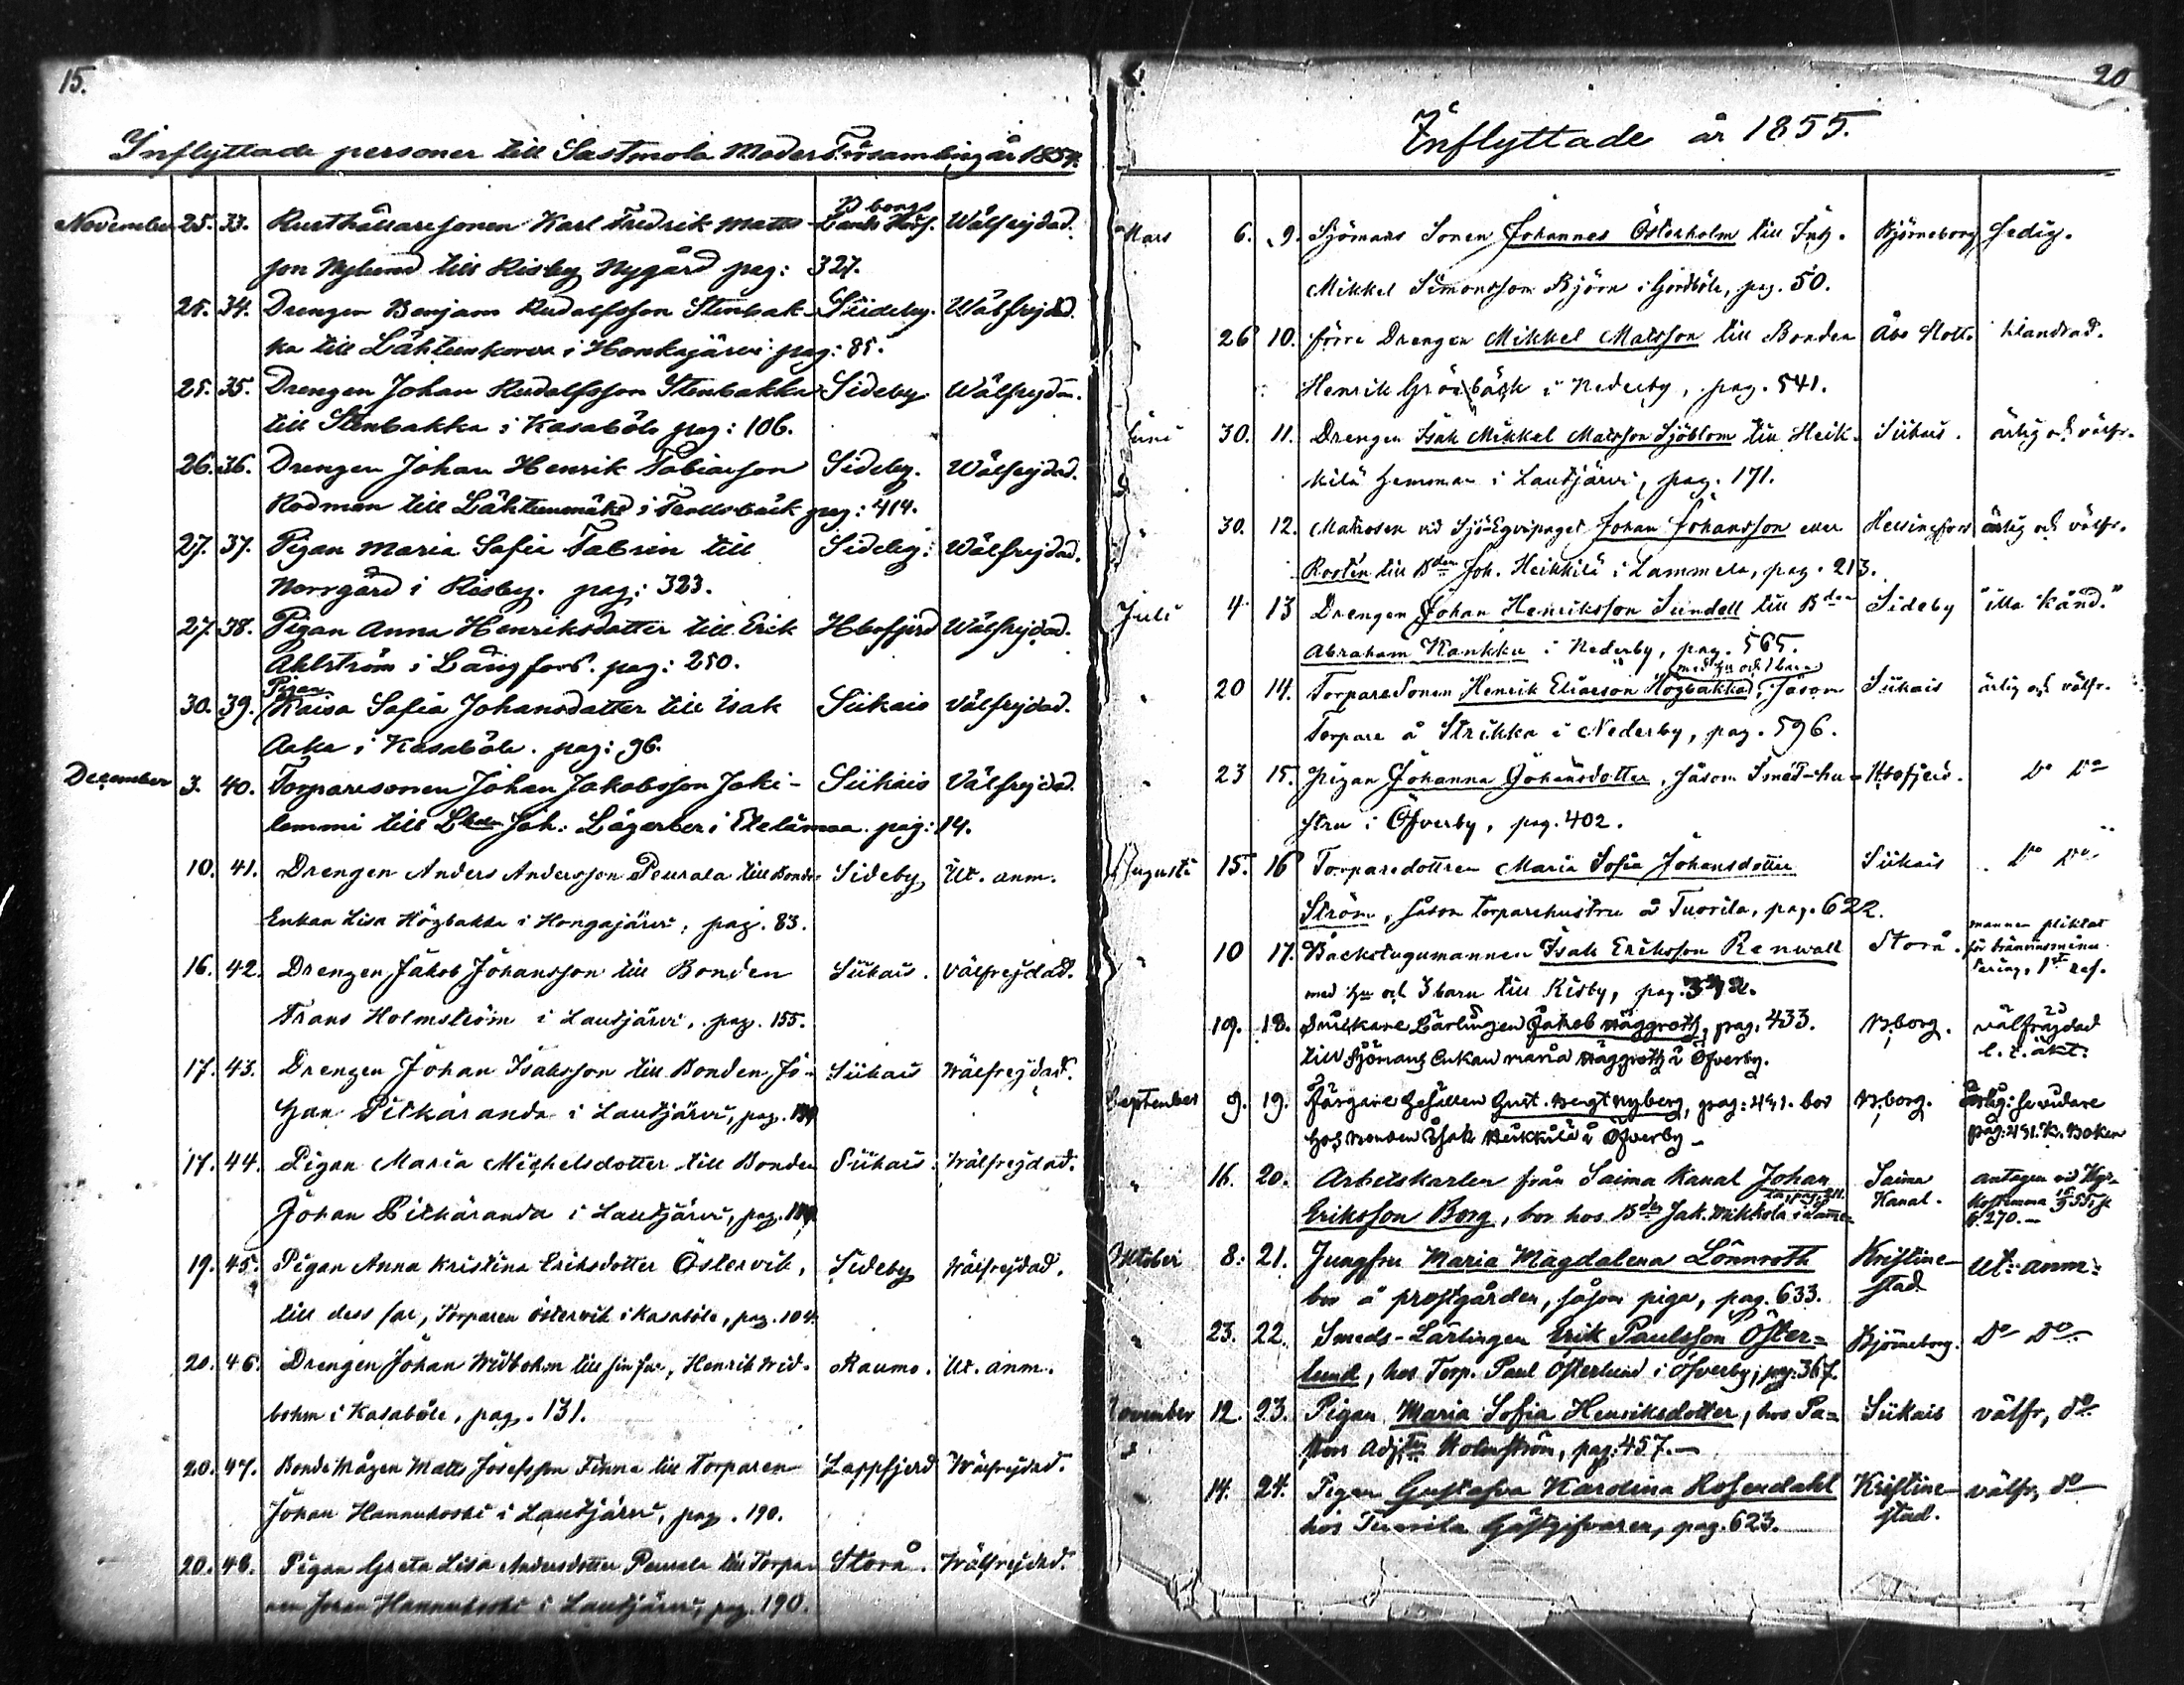 15.
Inflyttade personer till Sastmola Moder Församling år 1854.
November 25. 33. Rusthållaresonen Karl Fredrik Matts- B borgs Lands Förs. Wälfrejdad.
son Nylund till Risby Nygård pag: 327.
25. 34. Drengen Benjam Rudolfsson Stenbak- Siideby. Wälfrejdad.
ka till i Honkajärvi pag: 85.
25. 35. Drengen Johan Rudolfsson Stenbakka Sideby Wälfrejdad.
till Stenbakka i Kasaböle pag: 106.
26. 36. Drengen Johan Henrik Tobiasson Sideby. Wälfrejdad.
Rodman till Lähteenmäki i Trollsbäck pag: 414.
27. 37. Pigan Maria Sofia Fabrin till Sideby: Wälfrejdad.
Norrgård i Risby. pag: 323.
27. 38. Pigan Anna Henriksdotter till Erik Hbofjerd Wälfrejdad.
Ahlström i Långfors. pag: 250.
30. 39. Pigan Kaisa Sofia Johansdatter till Isak Siikais Välfrejdad.
i Kasaböle. pag: 96.
December 3. 40. Torparesonen Johan Jakobsson Joki- Siikais Välfrejdad.
lammi till Joh: i Etelämaa. pag: 14.
10. 41. Drengen Anders Andersson Peurala till Bonde- Sideby Ut. anm.
Enkan Lisa Högbakka i Hongajärvi, pag. 83.
16. 42. Drengen Jakob Johansson till Bonden Siikais. Välfrejdad.
Frans Holmström i Lautjärvi, pag. 155.
17. 43. Drengen Johan Isaksson till Bonden Jo- Siikais Wälfrejdad.
han Pitkäranda i Lautjärvi, pag.
17. 44. Pigan Maria Michelsdotter till Bonden Siikais. Wälfrejdad.
Johan Pitkäranda i Lautjärvi, pag.
19. 45. Pigan Anna Kristina Eriksdotter Östervik, Sideby Wälfrejdad.
till dess far, Torparen Östervik i Kasaböle, pag. 104.
20. 46. Drengen Johan Widbohm till sin far, Henrik Wid- Raumo. Ut. anm.
bohm i Kasaböle, pag. 131.
20. 47. Bondemågen Matts Josefsson Finne till Torparen Lappfjerd Wälfrejdad.
Johan Hannukoski i Lautjärvi, pag. 190.
20. 48. Pigan Greta Lisa Andersdotter Peurala till Torpa- Storå. Wälfrejdad.
ren Johan Hannukoski i Lautjärvi, pag. 190.
20
Inflyttade år 1855.
Mars 6. 9. Sjömans Sonen Johannes Österholm till Inh. Björneborg fredig.
Mikkel Simonsson Björn i Gårdböle, pag. 50.
26 10. förre Drengen Mikkel Matsson till Bonden Åbo Slott. klandrad.
Henrik Grönbäck i Nederby, pag. 541.
Juni 30. 11. Drengen Isak Mikkel Matsson Sjöblom till Heik- Siikais. ärlig och välfr.
kilä hemman i Lautjärvi, pag. 171.
30. 12. Matrosen vid Sjö-Eqvipaget Johan Johansson eller Helsingfors ärlig och välfr.
Rostén till Bden Joh. Heikkilä i Lammela, pag. 213.
Juli 4 13 Drengen Johan Henriksson Sundell till Bden Sideby "illa känd."
Abraham Kankku i Nederby, pag. 565.
med hu och 1 barn
20 14. Torparesonen Henrik Eliasson Högbakka, såsom Siikais ärlig och välfr.
Torpare å Strikka i Nederby, pag. 596.
23 15. Pigan Johanna Johansdotter, såsom Smed-hu- Hbofjerd. Do Do
stru i Öfverby, pag. 402.
Augusti 15. 16 Torparedottren Maria Sofia Johansdotter Siikais Do Do
Ström, såsom torparehustru å Tuorila, pag. 622.
10 17. Backstugumannen Isak Eriksson Renwall Storå. mannen pliktat för bränvinsminu- tering, 1sta res.
med hu och 3 barn till Risby, pag.
19. 18. Snickare Lärlingen Jakob Häggroth, pag. 433. B,borg. välfrejdad
till Sjömans Enkan Maria Häggroth i Öfverby.
September 9. 19. Färgare Gesällen Gust. Bengt Nyberg, pag: 491. bor B,borg. ärlig: se vidare
hos Bonden Isak Heikkilä i Öfverby - pag: 491. K. Boken
16. 20. Arbetskarlen från Saima Kanal Johan Saima Kanal. antagen vid Kyr-
Eriksson Borg, bor hos Bden Jak. Mikkola i Lamme- kostämma § 270. -
Oktober 8: 21. Jungfru Maria Magdalena Lönnroth Kristine- stad Ut: anm:
bor å prostgården, såsom piga, pag. 633.
23. 22. Smeds-Lärlingen Erik Paulsson Öster= Björneborg. Do Do
lund, hos Torp. Paul Österlund i Öfverby, pag: 367.
November 12. 23. Pigan Maria Sofia Henriksdotter, hos Pa= Siikais välfr, do
stors Adj. Holmström, pag: 457. -
14. 24. Pigan Gustafva Karolina Rosendahl Kristine- stad. välfr, do
hos Tuorila Gästgifvaren, pag. 623.